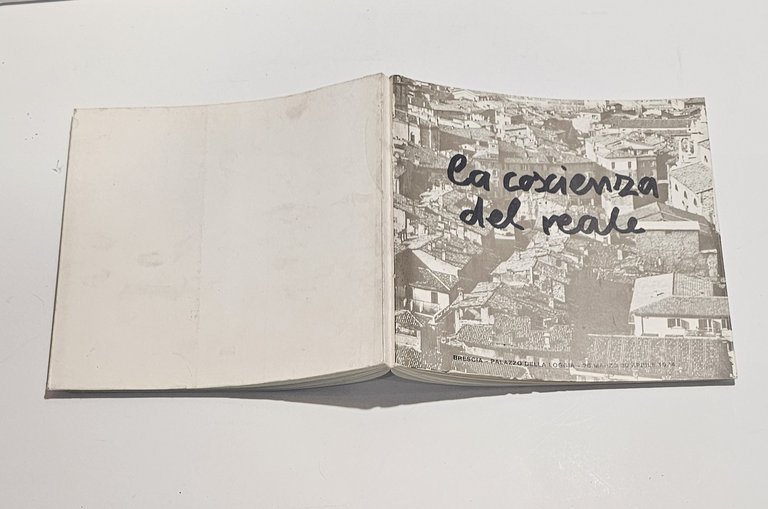 la coscienza
del reale
BRESCIA - PALAZZO DELLA LOGGIA - MARZO 30 APRILE 1974